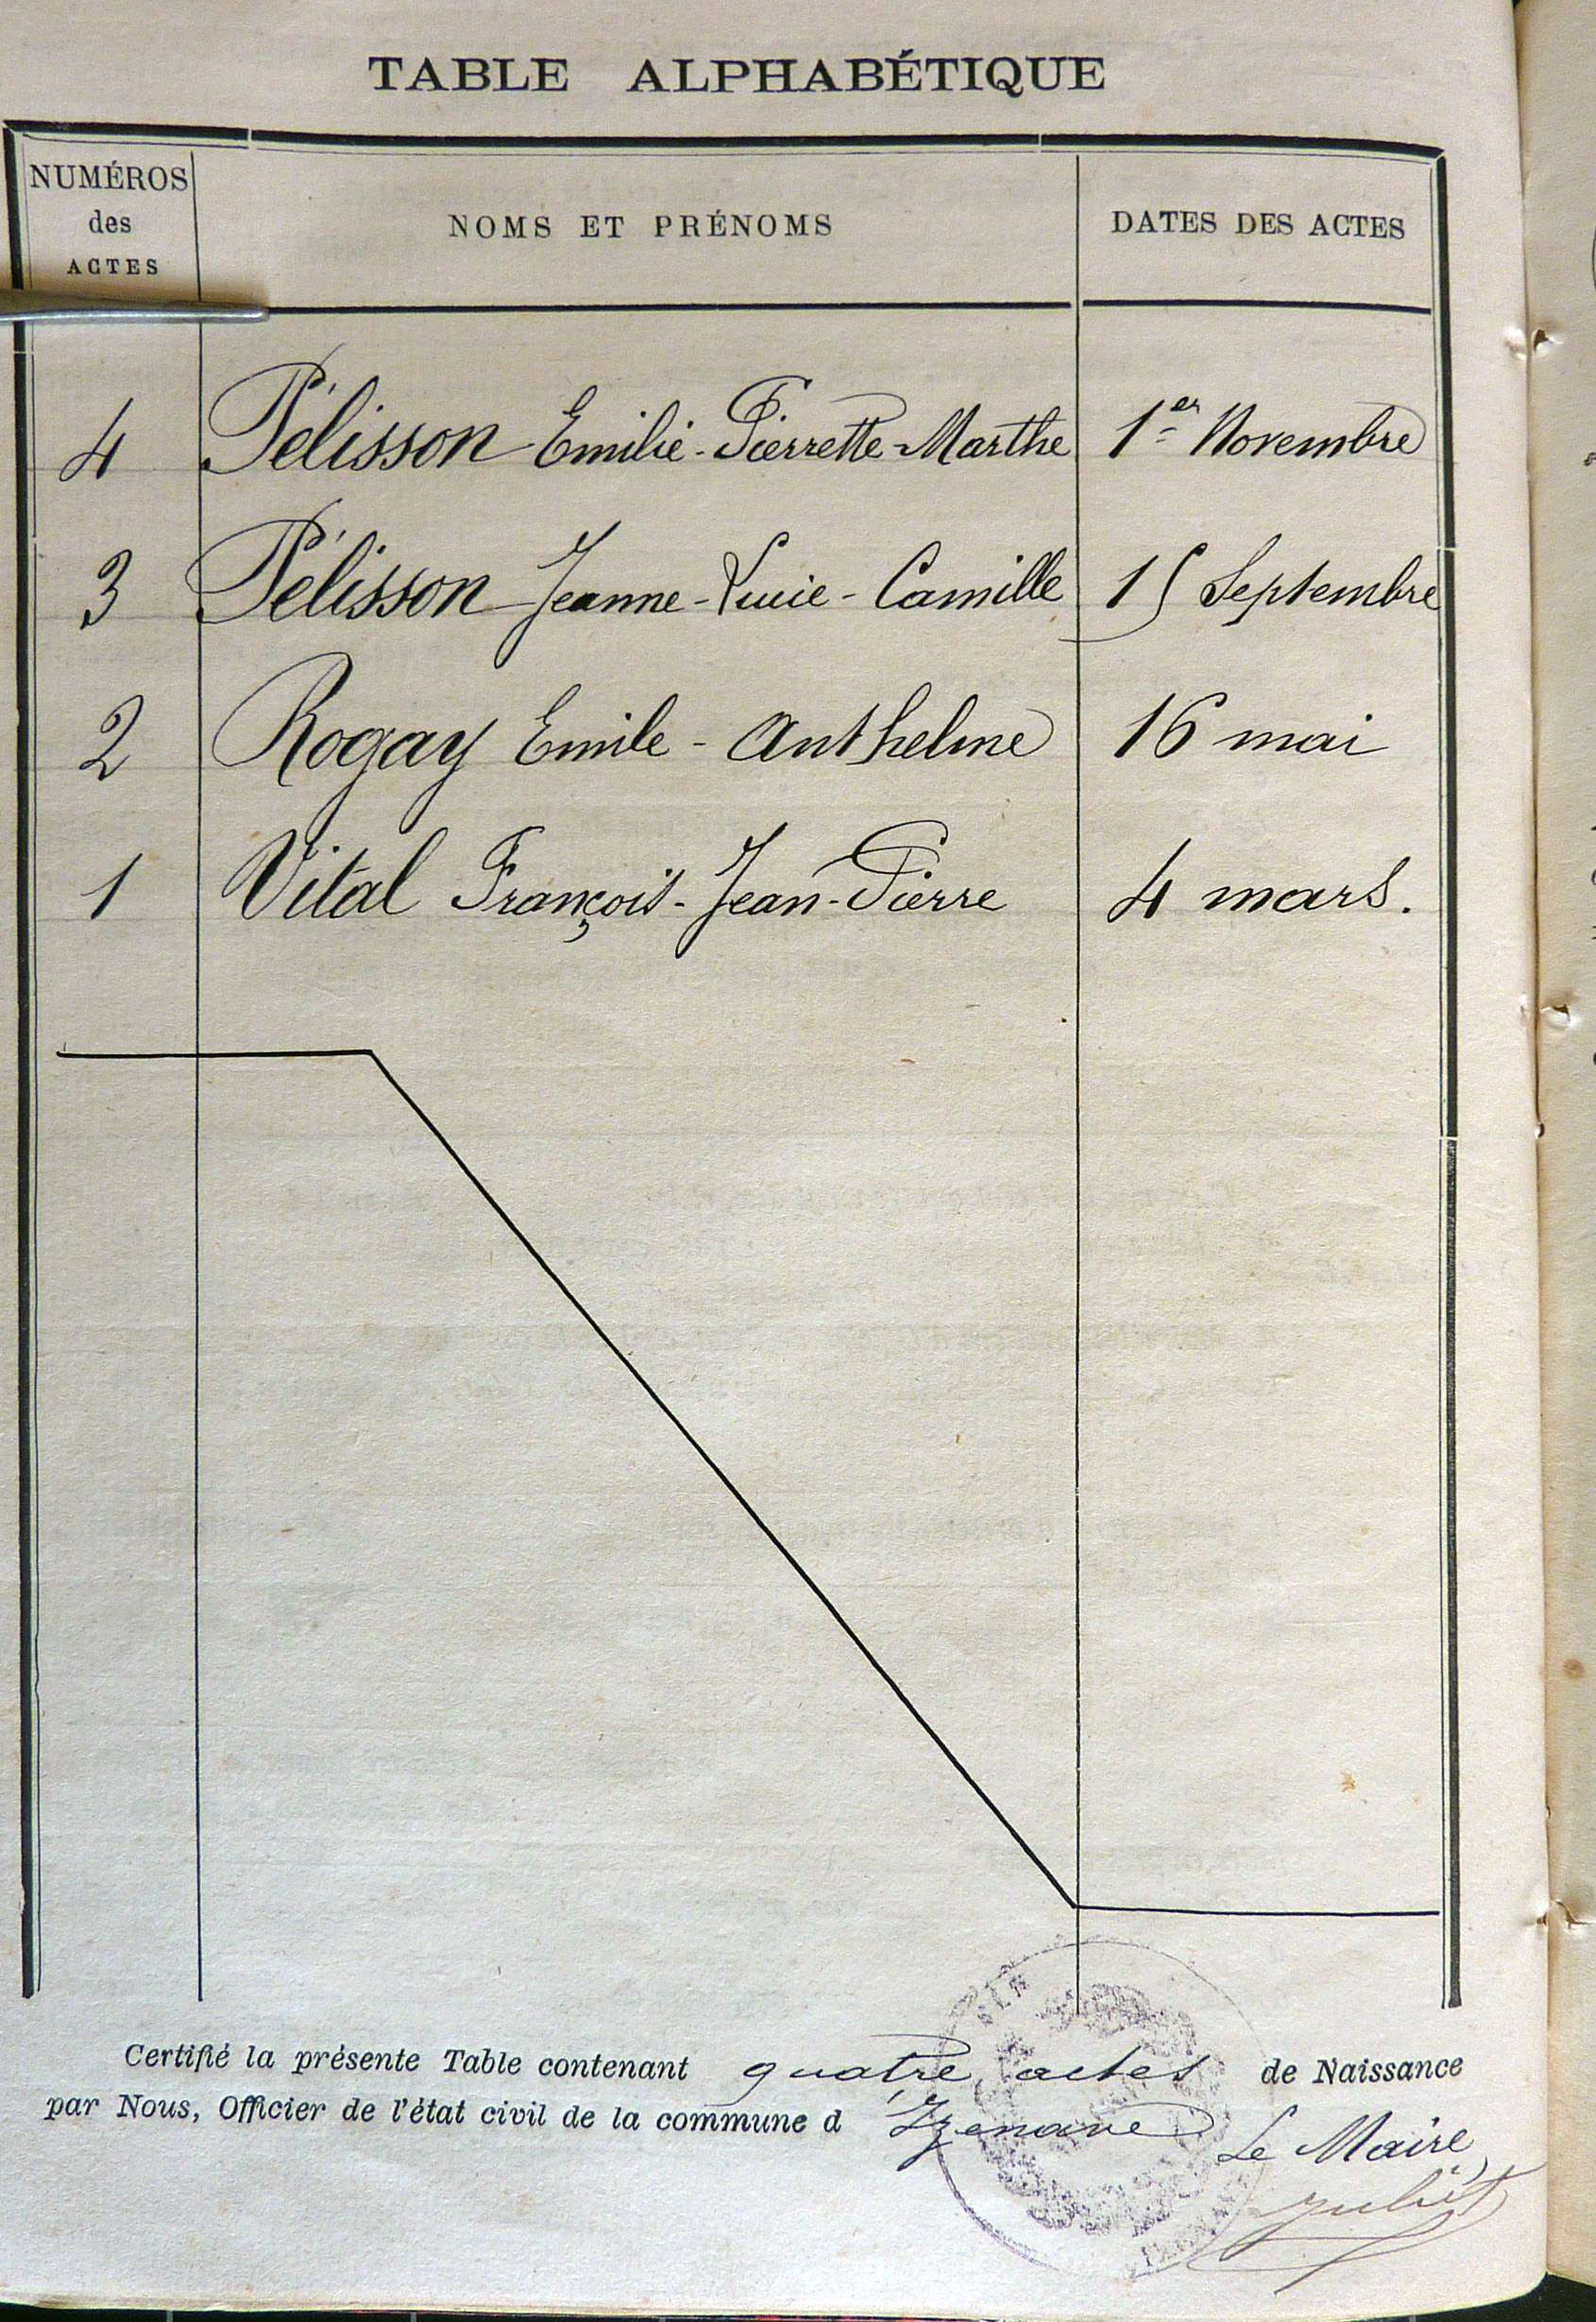 TABLE ALPHABÉTIQUE
NUMÉROS
des
ACTES
NOMS ET PRÉNOMS
DATES DES ACTES
4 Pélisson Emilie-Pierrette-Marthe 1er Novembre
3 Pélisson Jeanne-Lucie-Camille 15 Septembre
2 Rogay Emile-Anthelme 16 mai
1 Vital François-Jean-Pierre 4 mars.
Certifié la présente Table contenant quatre actes de Naissance
par Nous, Officier de l'état civil de la commune d'Izenave
Le Maire